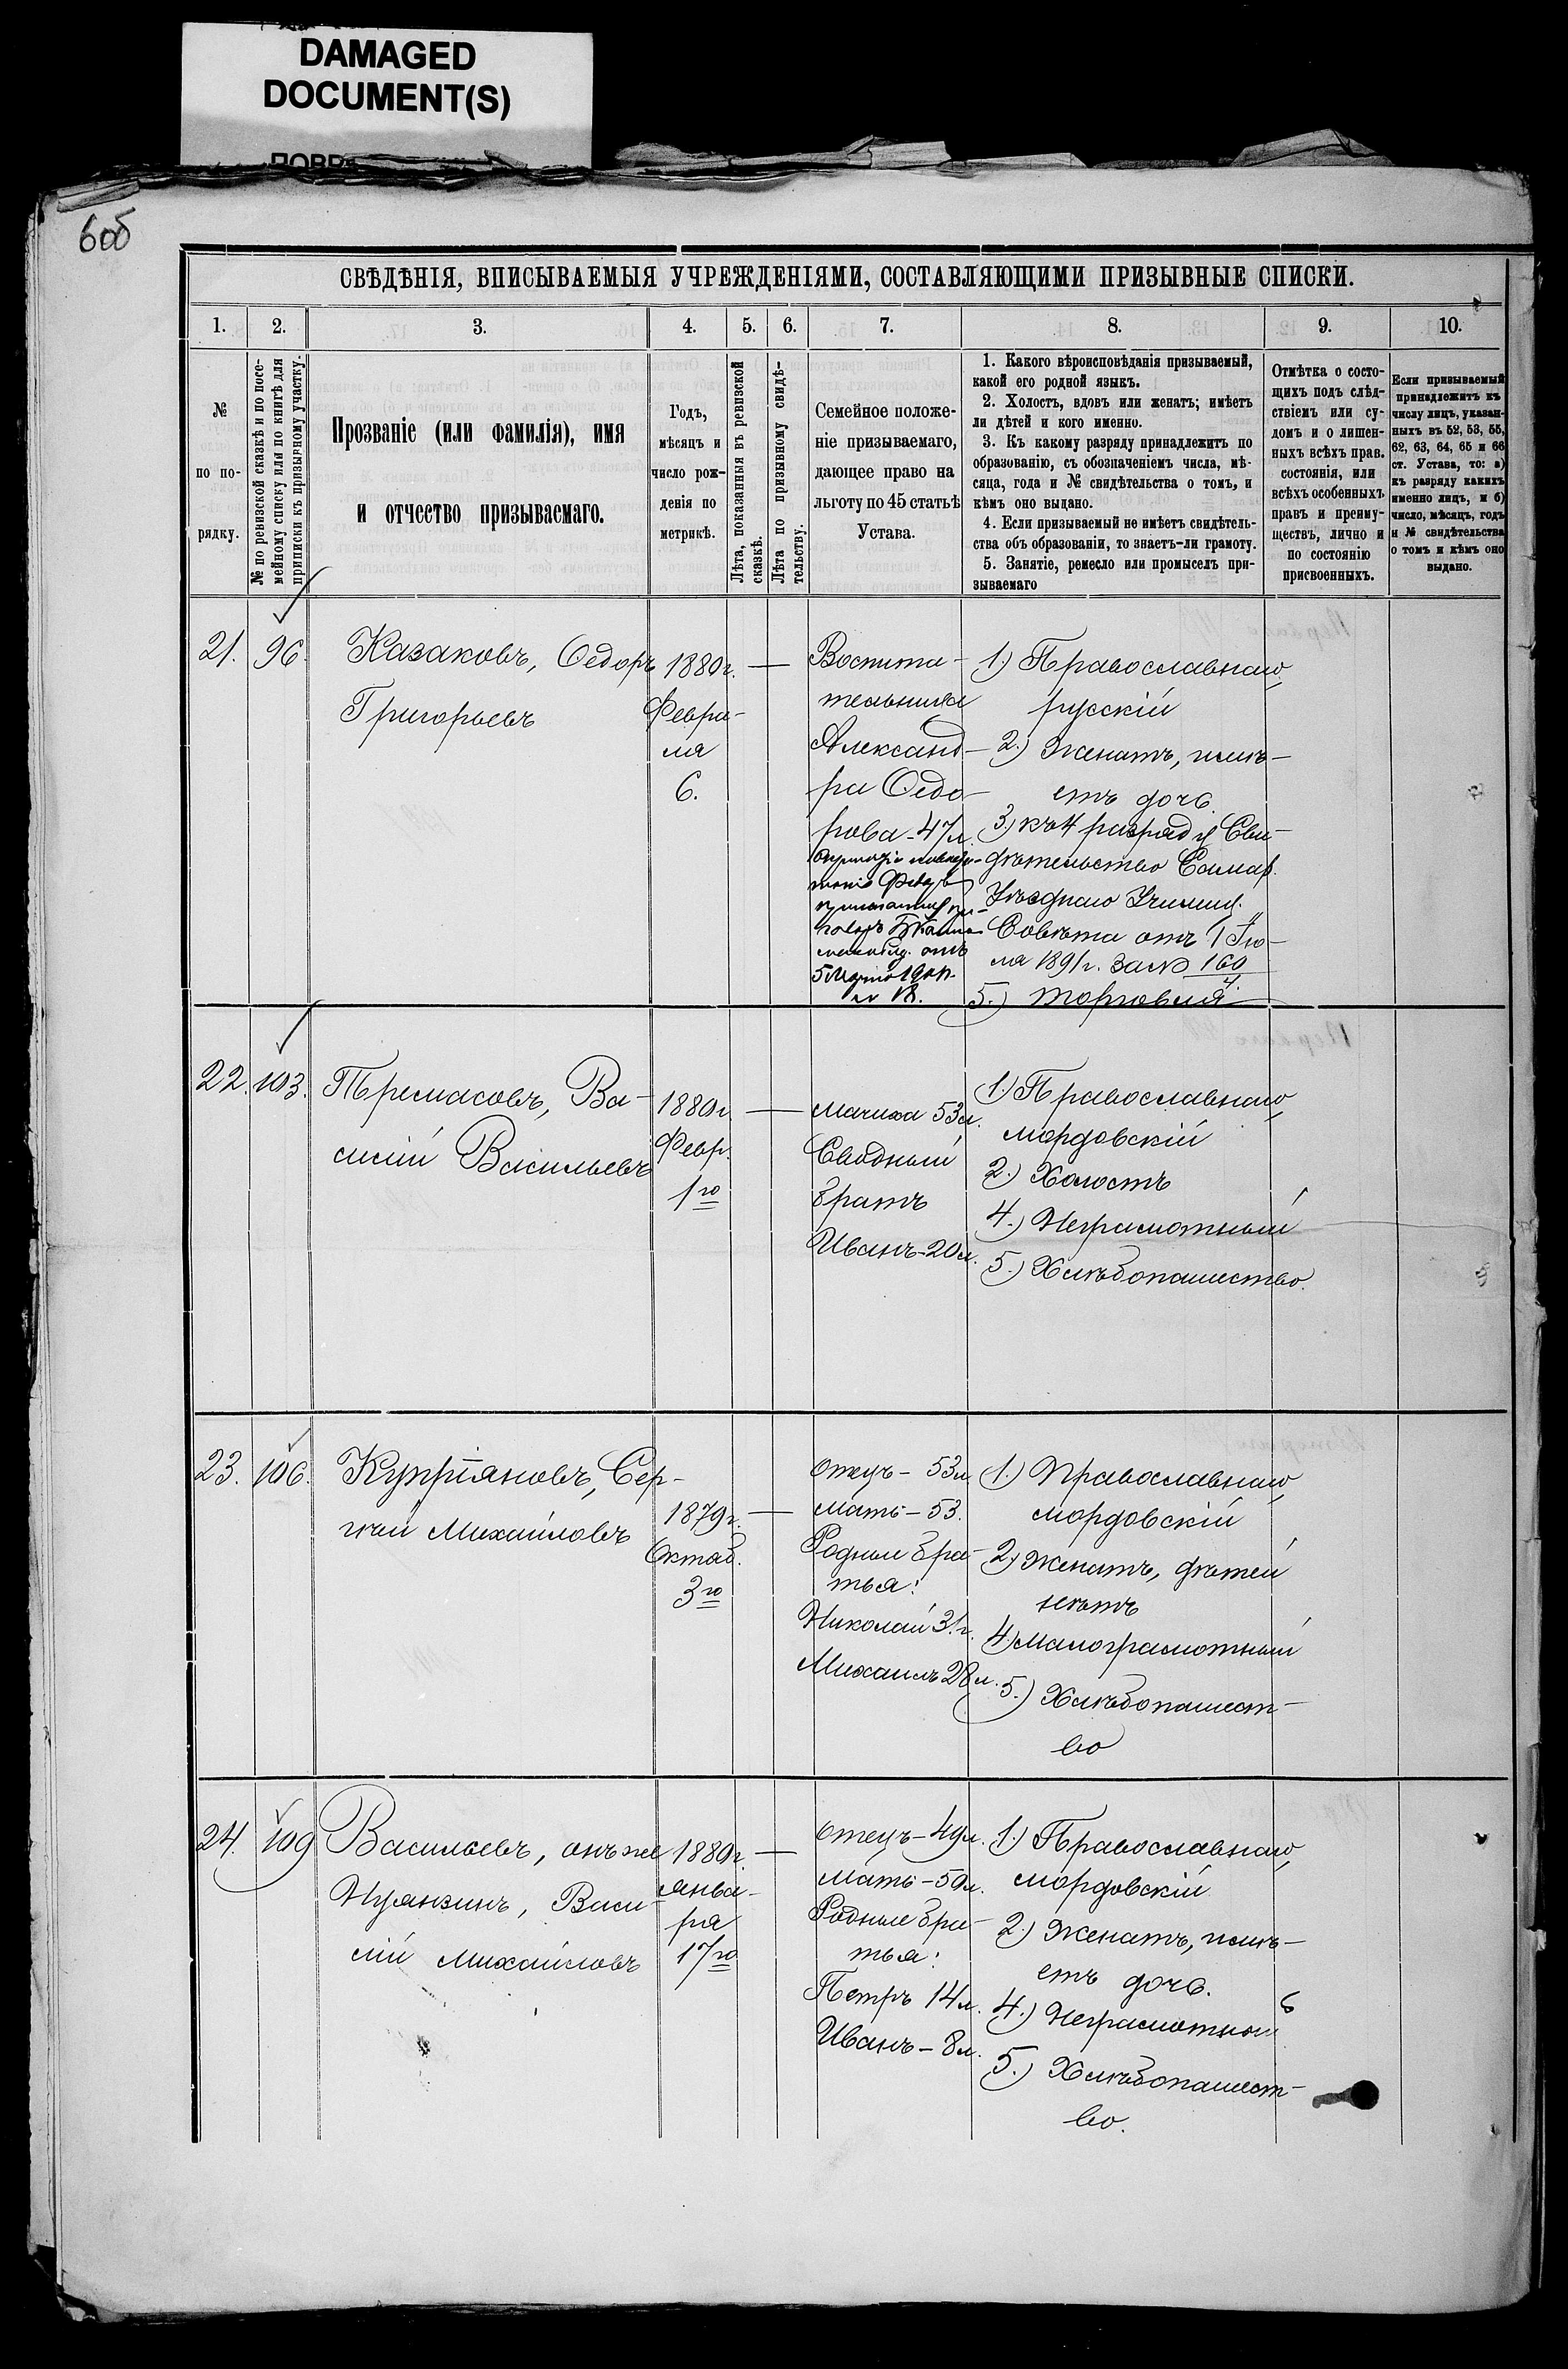 DAMAGED
DOCUMENT(S)
60б
СВѢДѢНІЯ, ВПИСЫВАЕМЫЯ УЧРЕЖДЕНІЯМИ, СОСТАВЛЯЮЩИМИ ПРИЗЫВНЫЕ СПИСКИ.
1. 2. 3. 4. 5. 6. 7. 8. 9. 10.
№
по по-
рядку.
№ по ревизской сказкѣ и по посе-
мейному списку или по книгѣ для
приписки къ призывному участку.
Прозваніе (или фамилія), имя
и отчество призываемаго.
Годъ,
мѣсяцъ и
число рож-
денія по
метрикѣ.
Лѣта, показанныя въ ревизской
сказкѣ.
Лѣта по призывному свидѣ-
тельству.
Семейное положе-
ніе призываемаго,
дающее право на
льготу по 45 статьѣ
Устава.
1. Какого вѣроисповѣданія призываемый,
какой его родной языкъ.
2. Холостъ, вдовъ или женатъ; имѣетъ
ли дѣтей и кого именно.
3. Къ какому разряду принадлежитъ по
образованію, съ обозначеніемъ числа, мѣ-
сяца, года и № свидѣтельства о томъ, и
кѣмъ оно выдано.
4. Если призываемый не имѣетъ свидѣтель-
ства объ образованіи, то знаетъ-ли грамоту.
5. Занятіе, ремесло или промыселъ при-
зываемаго
Отмѣтка о состо-
щихъ подъ слѣд-
ствіемъ или су-
домъ и о лишен-
ныхъ всѣхъ прав.
состоянія, или
всѣхъ особенныхъ
правъ и преиму-
ществъ, лично и
по состоянію
присвоенныхъ.
Если призываемый
принадлежитъ къ
числу лицъ, указан-
ныхъ въ 52, 53, 55,
62, 63, 64, 65 и 66
ст. Устава, то: а)
къ разряду какихъ
именно лицъ, и б)
число, мѣсяцъ, годъ
и № свидѣтельства
о томъ и кѣмъ оно
выдано.
21. 96.
Казаковъ, Ѳедоръ
Григорьевъ
1880г.
Февра-
ля
6.
Воспита-
тельница
Александ-
ра Ѳедо-
рова - 47л.
5 Марта
1.) Православнаго,
русскій
2.) Женатъ, имѣ-
етъ дочь.
3.) къ 4 разряду Сви-
дѣтельство Самар.
Уѣзднаго Училищ.
Совѣта отъ 1 Ію-
ля 1891г. за № 160
5.) торговля
22. 103.
Тремасовъ, Ва-
силій Васильевъ
1880г.
Февр.
1го
мачиха 53л.
Сводный
братъ
Иванъ - 20л.
1.) Православнаго,
мордовскій
2.) Холостъ
4.) Неграмотный
5.) Хлѣбопашество.
23. 106.
Купріяновъ, Сер-
гѣй Михайловъ
1879г.
Октяб.
3го
отецъ - 53л.
мать - 53.
Родные бра-
тья:
Николай 31г.
Михаилъ 28л.
1.) Православнаго,
мордовскій
2.) Женатъ, дѣтей
нѣтъ
4.) Малограмотный
5.) Хлѣбопашест-
во
24. 109
Васильевъ, онъ же
Нуянзинъ, Васи-
лій Михайловъ
1880г.
Янва-
ря
17го
отецъ - 49л.
мать - 50л.
Родные бра-
тья:
Петръ 14л.
Иванъ - 8л.
1.) Православнаго,
мордовскій
2.) Женатъ, имѣ-
етъ дочь.
4.) Неграмотный
5.) Хлѣбопашест-
во.